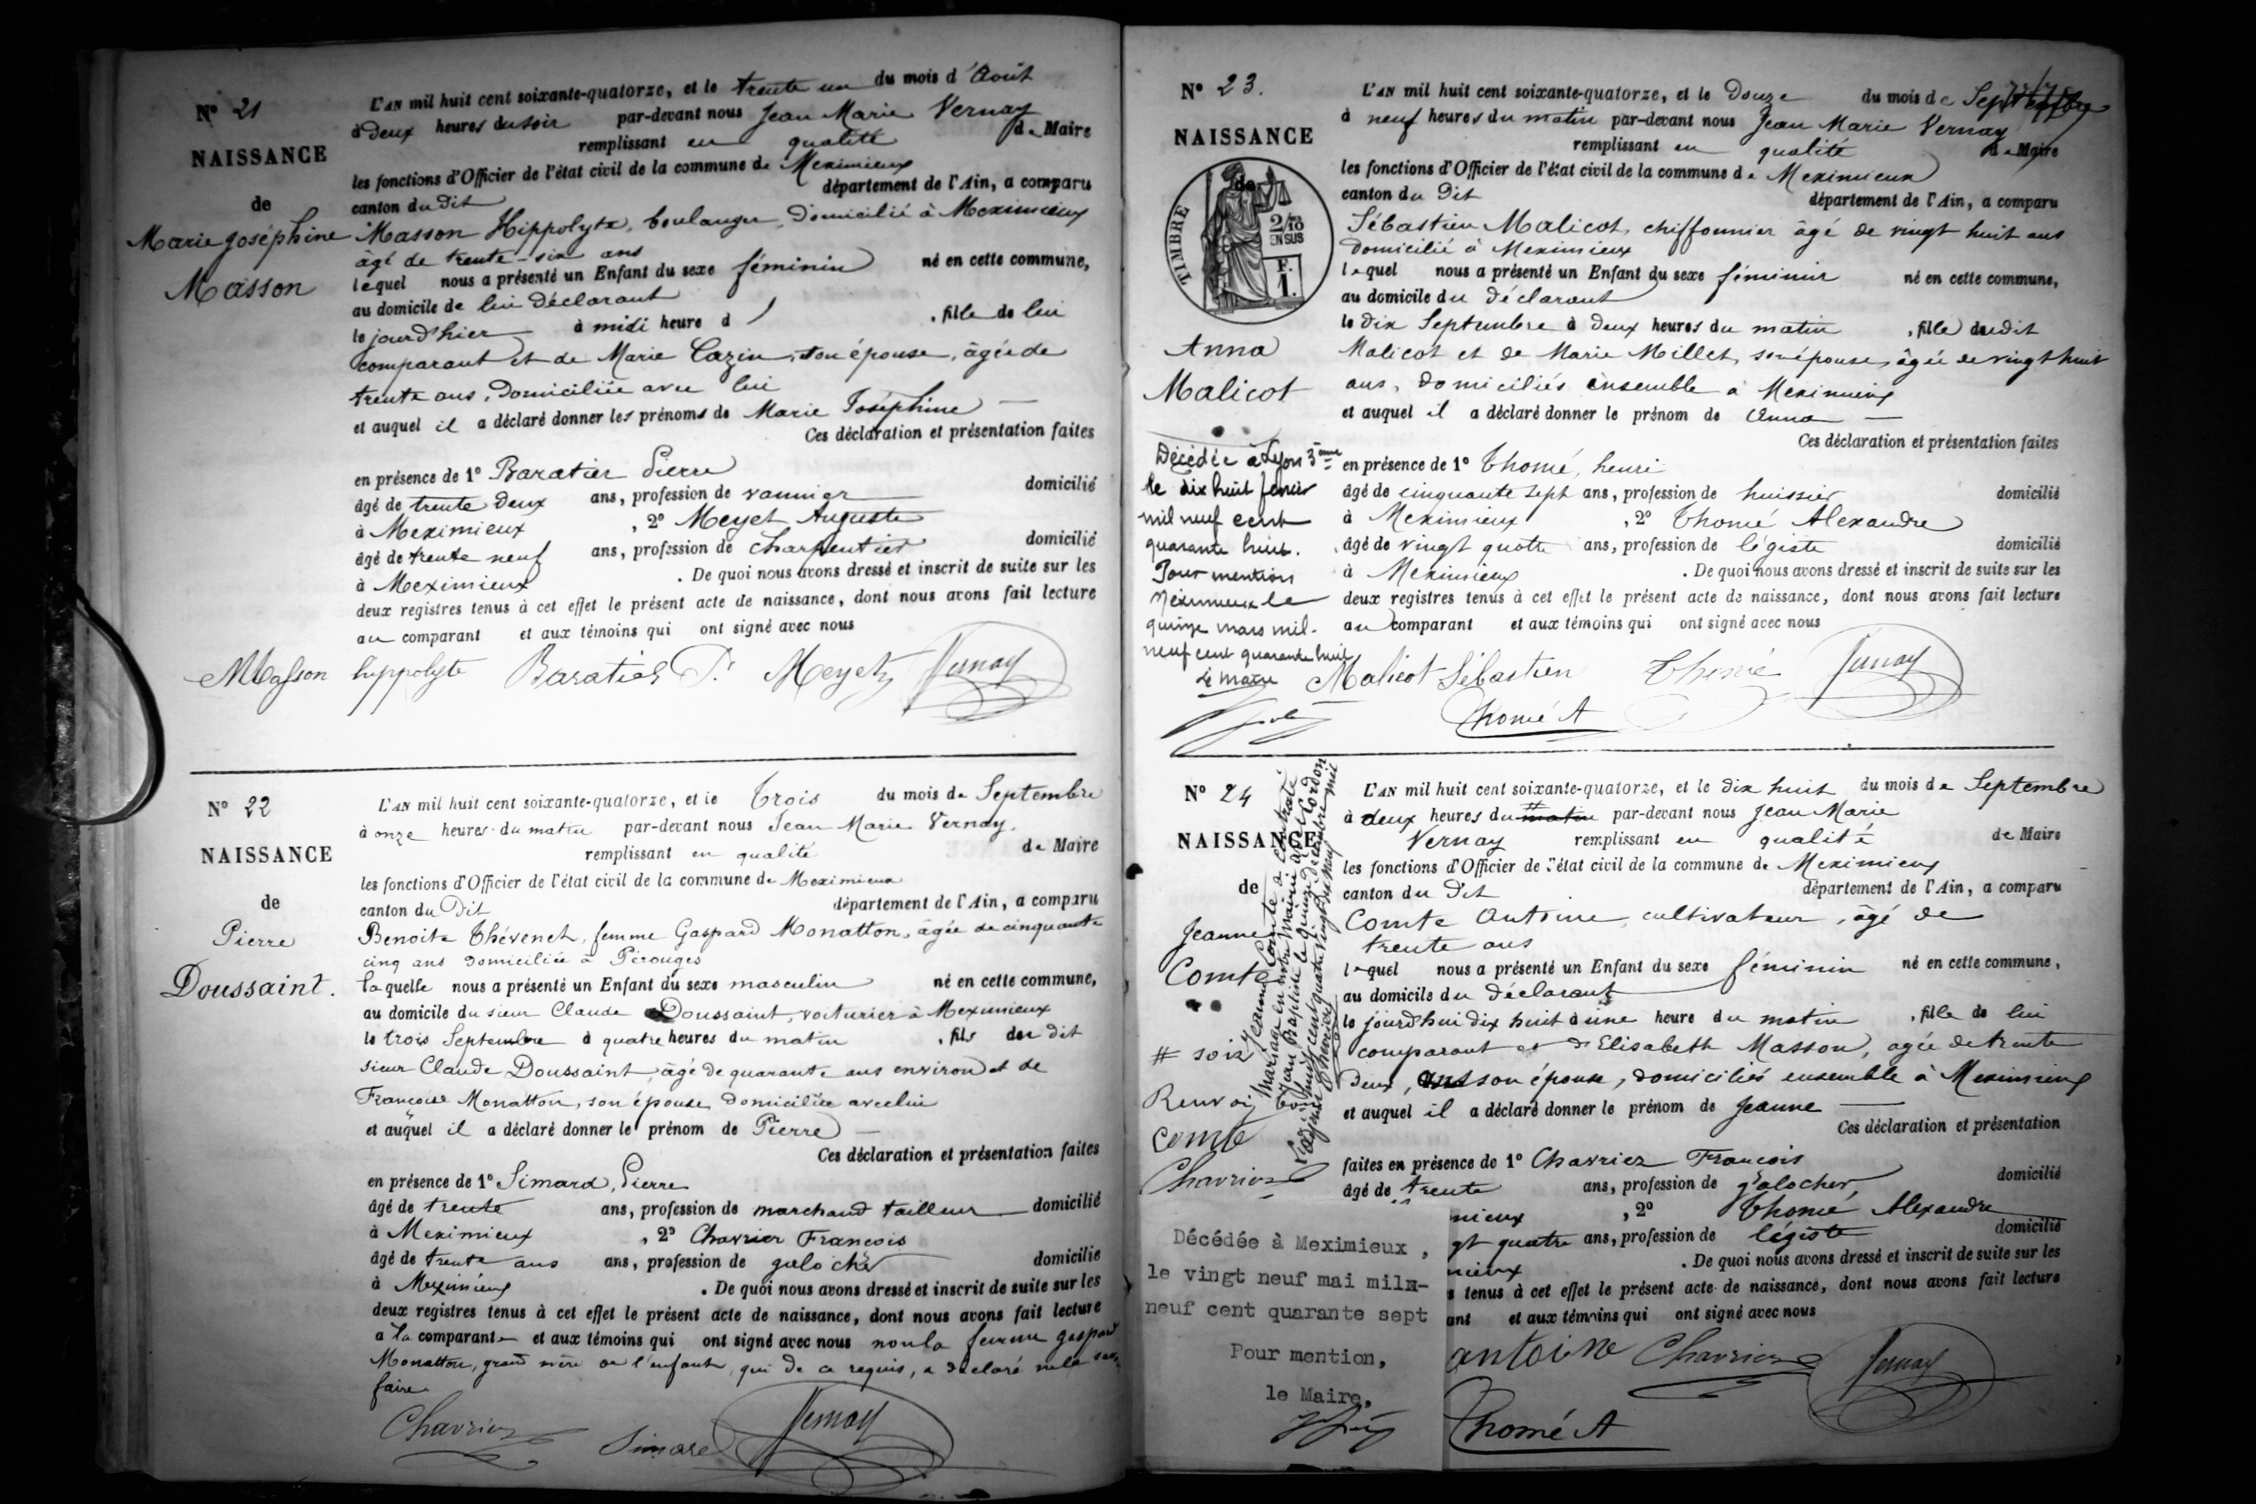 N° 21
NAISSANCE
de
Marie Joséphine
Masson
L'AN mil huit cent soixante-quatorze, et le trente un du mois d'Août
à deux heures du soir par-devant nous Jean Marie Vernay
remplissant en qualité de Maire
les fonctions d'Officier de l'état civil de la commune de Meximieux
canton du dit département de l'Ain, a comparu
Masson Hippolyte, boulanger, domicilié à Meximieux
âgé de trente-six ans
lequel nous a présenté un Enfant du sexe féminin né en cette commune,
au domicile de lui déclarant
le jourd'hier à midi heure d , fille de lui
comparant et de Marie Cazin, son épouse, âgée de
trente ans, domiciliée avec lui
et auquel il a déclaré donner les prénoms de Marie Joséphine
Ces déclaration et présentation faites
en présence de 1° Baratier Pierre
âgé de trente deux ans, profession de vannier domicilié
à Meximieux , 2° Meyet Auguste
âgé de trente neuf ans, profession de charpentier domicilié
à Meximieux . De quoi nous avons dressé et inscrit de suite sur les
deux registres tenus à cet effet le présent acte de naissance, dont nous avons fait lecture
au comparant et aux témoins qui ont signé avec nous
Masson hyppolyte Baratier P. Meyet Vernay
N° 22
NAISSANCE
de
Pierre
Doussaint.
L'AN mil huit cent soixante-quatorze, et le trois du mois de Septembre
à onze heures du matin par-devant nous Jean Marie Vernay,
remplissant en qualité de Maire
les fonctions d'Officier de l'état civil de la commune de Meximieux
canton du Dit département de l'Ain, a comparu
Benoite Thévenet, femme Gaspard Monatton, âgée de cinquante
cinq ans domiciliée à Pérouges
Laquelle nous a présenté un Enfant du sexe masculin né en cette commune,
au domicile du sieur Claude Doussaint, voiturier à Meximieux
le trois Septembre à quatre heures du matin , fils du dit
sieur Claude Doussaint, âgé de quarante ans environ et de
Françoise Monatton, son épouse domiciliée avec lui
et auquel il a déclaré donner le prénom de Pierre
Ces déclaration et présentation faites
en présence de 1° Simard, Pierre
âgé de trente ans, profession de marchand tailleur domicilié
à Meximieux , 2° Chavrier François
âgé de trente ans ans, profession de galocher domicilié
à Meximieux . De quoi nous avons dressé et inscrit de suite sur les
deux registres tenus à cet effet le présent acte de naissance, dont nous avons fait lecture
a la comparante et aux témoins qui ont signé avec nous non la femme gaspard
Monatton, grand mère de l'enfant, qui de ce requis, a déclaré ne le
faire
Chavrier Simard Vernay
N° 23.
NAISSANCE
de
TIMBRE
2/10
EN SUS
F.
1.
Anna
Malicot
Décédée à Lyon 3ème
le dix huit fevrier
mil neuf cent
quarante huit.
Pour mention
Meximieux le
quinze mars mil-
neuf cent quarante huit
Le Maire
L'AN mil huit cent soixante-quatorze, et le Douze du mois de Septembre
à neuf heures du matin par-devant nous Jean Marie Vernay
remplissant en qualité de Maire
les fonctions d'Officier de l'état civil de la commune de Meximieux
canton du Dit département de l'Ain, a comparu
Sébastien Malicot, chiffonnier âgé de vingt huit ans
domicilié à Meximieux
lequel nous a présenté un Enfant du sexe féminin né en cette commune,
au domicile du déclarant
le dix Septembre à deux heures du matin , fille dudit
Malicot et de Marie Millet, son épouse, âgée de vingt huit
ans, domiciliés ensemble à Meximieux
et auquel il a déclaré donner le prénom de Anna
Ces déclaration et présentation faites
en présence de 1° Thomé, henri
âgé de cinquante sept ans, profession de huissier domicilié
à Meximieux , 2° Thomé Alexandre
âgé de vingt quatre ans, profession de légiste domicilié
à Meximieux . De quoi nous avons dressé et inscrit de suite sur les
deux registres tenus à cet effet le présent acte de naissance, dont nous avons fait lecture
au comparant et aux témoins qui ont signé avec nous
Malicot Sébastien Thomé Vernay
Thomé A
N° 24
NAISSANCE
de
Jeanne
Comte
# soir
Renvoi
Comte
Chavrier
Jeanne Comte a contracté
mariage en notre mairie avec Cordon
Jean Baptiste le quinze décembre mil
huit cent quatre vingt
L'AN mil huit cent soixante-quatorze, et le dix huit du mois de Septembre
à deux heures du matin # par-devant nous Jean Marie
Vernay remplissant en qualité de Maire
les fonctions d'Officier de l'état civil de la commune de Meximieux
canton du Dit département de l'Ain, a comparu
Comte Antoine, cultivateur, âgé de
trente ans
lequel nous a présenté un Enfant du sexe féminin né en cette commune,
au domicile du déclarant
le jourd'hui dix huit à une heure du matin , fille de lui
comparant et d'Elisabeth Masson, agée de trente
deux, ans son épouse, domiciliés ensemble à Meximieux
et auquel il a déclaré donner le prénom de Jeanne
Ces déclaration et présentation
faites en présence de 1° Chavrier François
âgé de trente ans, profession de galocher domicilié
mieux , 2° Thomé Alexandre
gt quatre ans, profession de légiste domicilié
mieux . De quoi nous avons dressé et inscrit de suite sur les
s tenus à cet effet le présent acte de naissance, dont nous avons fait lecture
ant et aux témoins qui ont signé avec nous
antoine Chavrier Vernay
Thomé A
Décédée à Meximieux,
le vingt neuf mai mil-
neuf cent quarante sept
Pour mention,
le Maire,